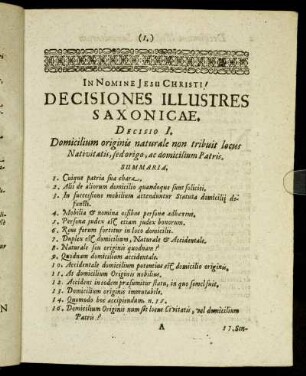 (1.)
IN NOMINE JESU CHRISTI!
DECISIONES ILLUSTRES
SAXONICAE.
DECISIO I.
Domicilium originis naturale non tribuit locus
Nativitatis, sed origo, ac domicilium Patris.
SUMMARIA.
1. Cuique patria sua chara.
2. Alii de aliorum domicilio quandoque sunt soliciti.
3. In successione mobilium attenduntur Statuta domicilij de-
functi.
4. Mobilia & nomina ossibus personæ adhærent,
5. Personæ judex est etiam judex bonorum.
6. Reus forum sortitur in loco domicilii.
7. Duplex est domicilium, Naturale & Accidentale.
8. Naturale seu originis quodnam?
9. Quodnam domicilium accidentale.
10. Accidentale domicilium potentius est domicilio originis,
11. At domicilium Originis nobilius,
12. Accidens in eodem præsumitur statu, in quo semel fuit,
13. Domicilium originis immutabile.
14. Quomodo hoc accipiendum. n. 15.
16. Domicilium Originis num sit locus Civitatis, vel domicilium
Patris?
A
17. Sen-